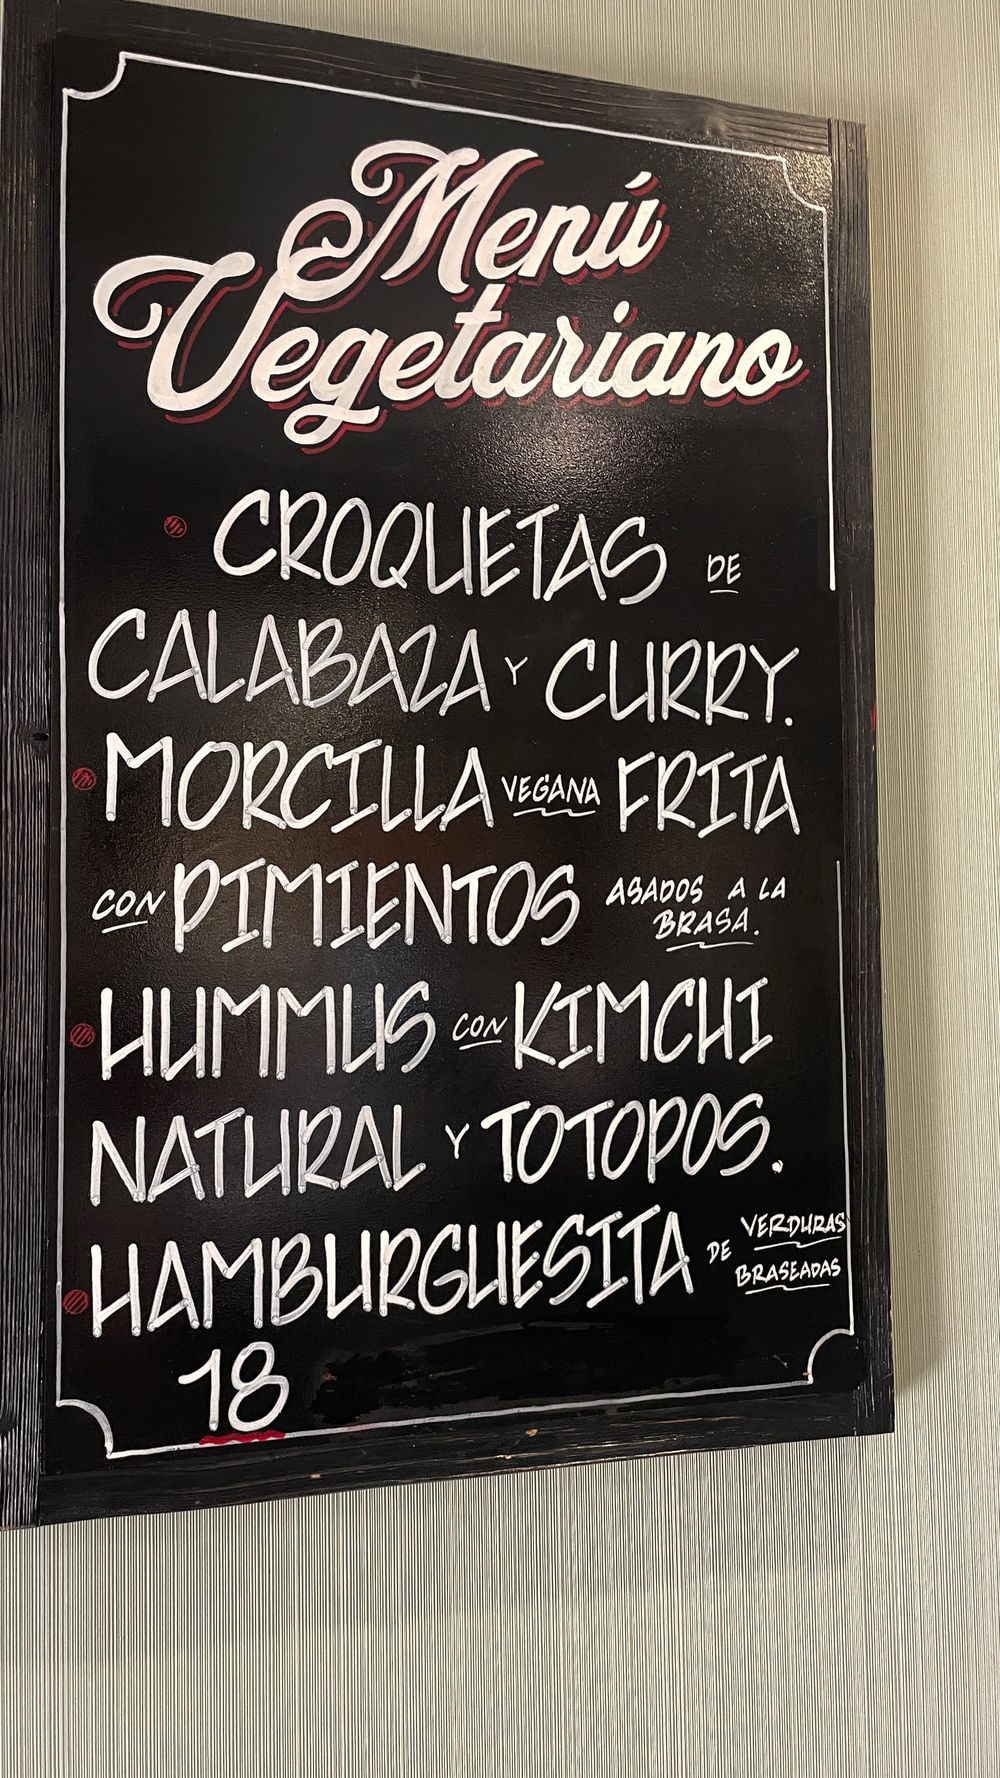 Menú
Vegetariano
CROQUETAS DE
CALABAZA Y CURRY.
MORCILLA VEGANA FRITA
CON PIMIENTOS ASADOS A LA
BRASA.
HUMMUS CON KIMCHI
NATURAL Y TOTOPOS.
HAMBURGUESITA DE VERDURAS
BRASEADAS
18